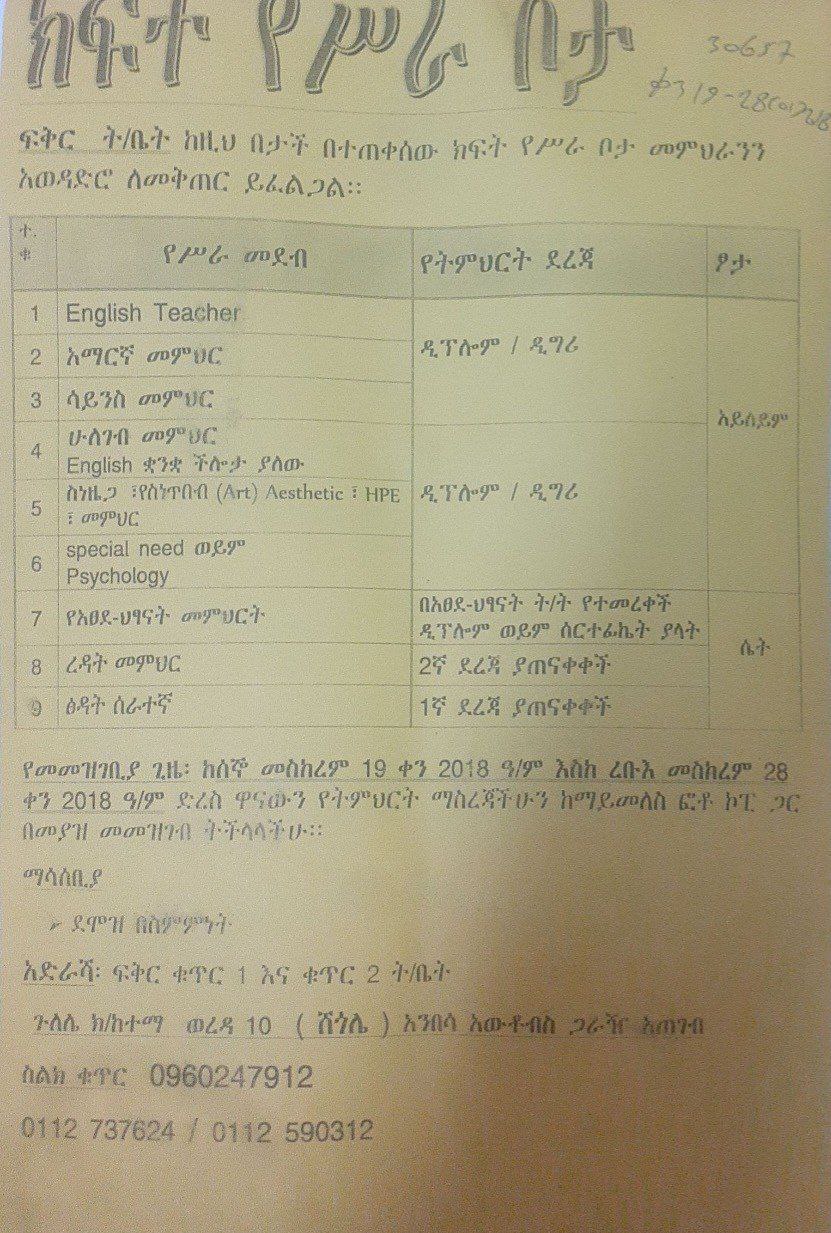 ክፍት የሥራ ቦታ
30657
ፍቅር ት/ቤት ከዚህ በታች በተጠቀሰው ክፍት የሥራ ቦታ መምህራንን
አወዳድሮ ለመቅጠር ይፈልጋል፡፡
ተ.
ቁ
የሥራ መደብ
የትምህርት ደረጃ
ፆታ
1 English Teacher
2 አማርኛ መምህር
ዲፕሎም / ዲግሪ
3 ሳይንስ መምህር
አይለይም
4 ሁለገብ መምህር
English ቋንቋ ችሎታ ያለው
5 ስነዜጋ ፣የስነጥበብ (Art) Aesthetic ፣ HPE
፣ መምህር
ዲፕሎም / ዲግሪ
6 special need ወይም
Psychology
7 የአፀደ-ህፃናት መምህርት
በአፀደ-ህፃናት ት/ት የተመረቀች
ዲፕሎም ወይም ሰርተፊኬት ያላት
ሴት
8 ረዳት መምህር 2ኛ ደረጃ ያጠናቀቀች
9 ፅዳት ሰራተኛ 1ኛ ደረጃ ያጠናቀቀች
የመመዝገቢያ ጊዜ፡ ከሰኞ መስከረም 19 ቀን 2018 ዓ/ም እስከ ረቡእ መስከረም 28
ቀን 2018 ዓ/ም ድረስ ዋናውን የትምህርት ማስረጃችሁን ከማይመለስ ፎቶ ኮፒ ጋር
በመያዝ መመዝገብ ትችላላችሁ፡፡
ማሳሰቢያ
➢ ደሞዝ በስምምነት
አድራሻ፡ ፍቅር ቁጥር 1 እና ቁጥር 2 ት/ቤት
ጉለሌ ክ/ከተማ ወረዳ 10 ( ሽጎሌ ) አንበሳ አውቶብስ ጋራዥ አጠገብ
ስልክ ቁጥር 0960247912
0112 737624 / 0112 590312